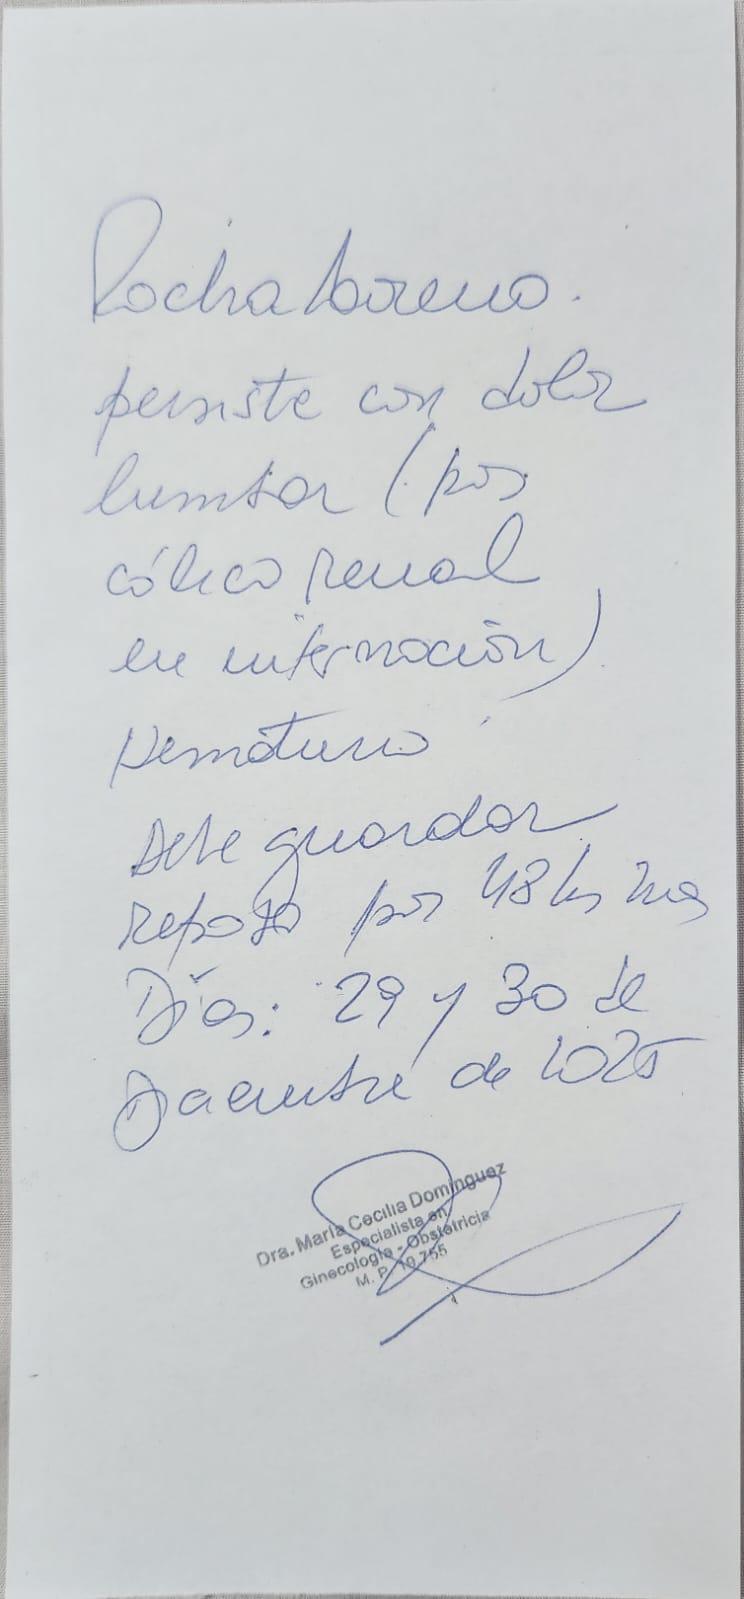 Rocha Loreno.
persiste con dolor
lumbar (pos
cólico renal
en internación)
Hematuria
Debe guardar
reposo por 48 hs mas
Días: 29 y 30 de
Diciembre de 2025
Dra. María Cecilia Dominguez
Especialista en
Ginecología - Obstetricia
M. P. 10.755